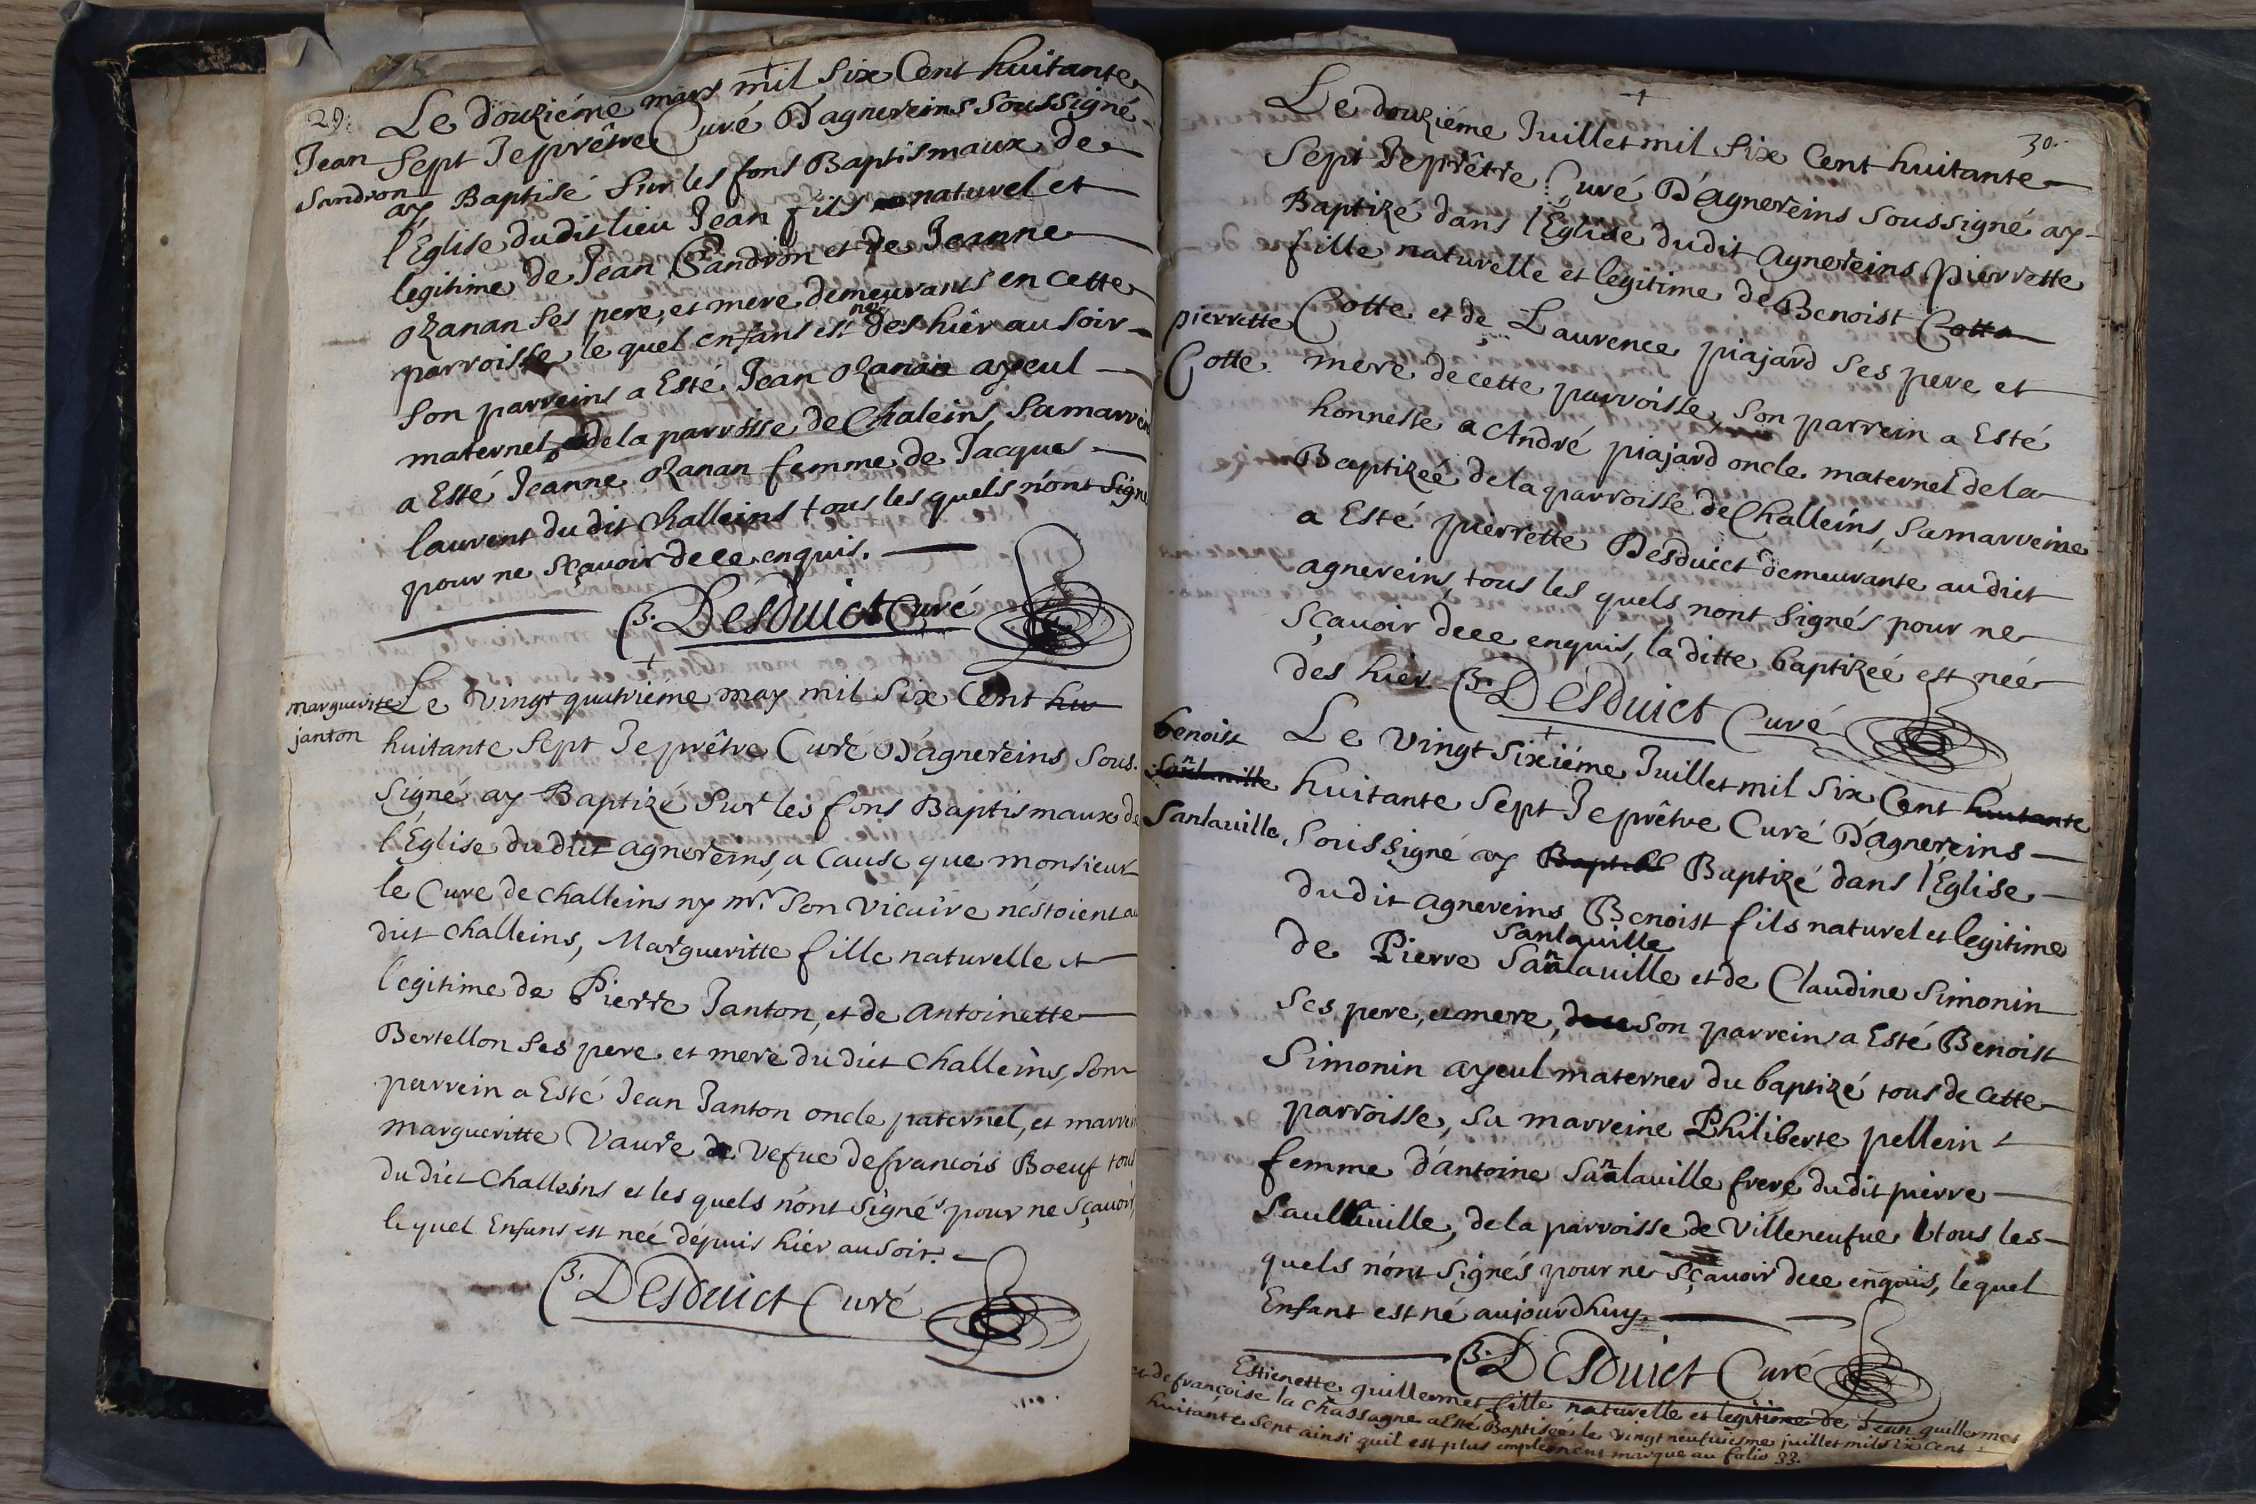 29.
Le douziéme mars mil six Cent huitante
Jean
Sandron
Sept Je prêtre Curé D'agnereins soussigné
ay Baptisé sur les fons Baptismaux de
l'Eglise dudit lieu Jean fils naturel et
legitime de Jean Sandron et de Jeanne
Ozanan ses pere, et mere demeurants en cette
parroisse, le quel enfans est né des hier au soir
son parreins a Esté Jean Ozanan ayeul
maternel de la parroisse de Chaleins, sa marrein
a Esté Jeanne Ozanan femme de Jacques
laurent du dit Challeins tous les quels n'ont signé
pour ne sçavoir de ce enquis.
B. Desduict Curé
Marguerite
janton
Le vingt quatrieme may mil six Cent hu
huitante sept Je prêtre Curé D'agnereins sous.
signé ay Baptizé sur les fons Baptismaux de
l'Eglise du dict agnereins, a Cause que monsieur
le Cure de challeins ny mr. son vicaire n'estoient au
dict challeins, Margueritte fille naturelle et
legitime de Pierre Janton, et de Antoinette
Bertellon ses pere et mere du dict Challeins, son
parrein a Esté Jean Janton oncle paternel, et marrein
margueritte Vaure vefue de francois Boeuf tous
du dict Challeins et les quels n'ont signés pour ne sçavoir,
le quel Enfans est née dépuis hier au soir.
B. Desduict Curé
30.
Le douziéme Juillet mil six Cent huitante
Sept Je prêtre Curé D'agnereins soussigné ay
Baptizé dans l'Eglise dudit agnereins pierrette
fille naturelle et legitime de Benoist Cotta
pierrette
Cotte
Cotte et de Laurence piajard ses pere et
mere de cette parroisse, son parrein a Esté
honneste André piajard oncle maternel de la
Baptizeé de la parroisse de Challeins, sa marreine
a Esté pierrette Desduict demeurante audict
agnereins, tous les quels nont signés pour ne
sçavoir dece enquis, la ditte baptizée est née
des hier B. Desduict Curé
benoist
Sanlaville
Sanlaville
Le vingt sixiéme Juillet mil six Cent huitante
huitante sept Je prêtre Curé D'agnereins
soussigné ay Baptisé Baptizé dans l'Eglise
du dit agnereins Benoist fils naturel et legitime
sanlauille
de Pierre sanlauille et de Claudine simonin
ses pere, et mere, son parrein a Esté Benoist
Simonin ayeul maternel du baptizé tous de cette
parroisse, sa marreine Philiberte pellein
femme d'antoine sanlauille frere dudit pierre
Saulauille, de la parroisse de Villeneufue tous les
quels n'ont signés pour ne sçavoir dece enquis, lequel
Enfant est né aujourdhuy.
B. Desduict Curé
Estienette guillermet fille naturelle et legitime de Jean guillermet
et de françoise la chassagne a esté Baptisée le vingt neufuiesme juillet mil six cent
huitante sept ainsi quil est plus amplement marque au folio 33.